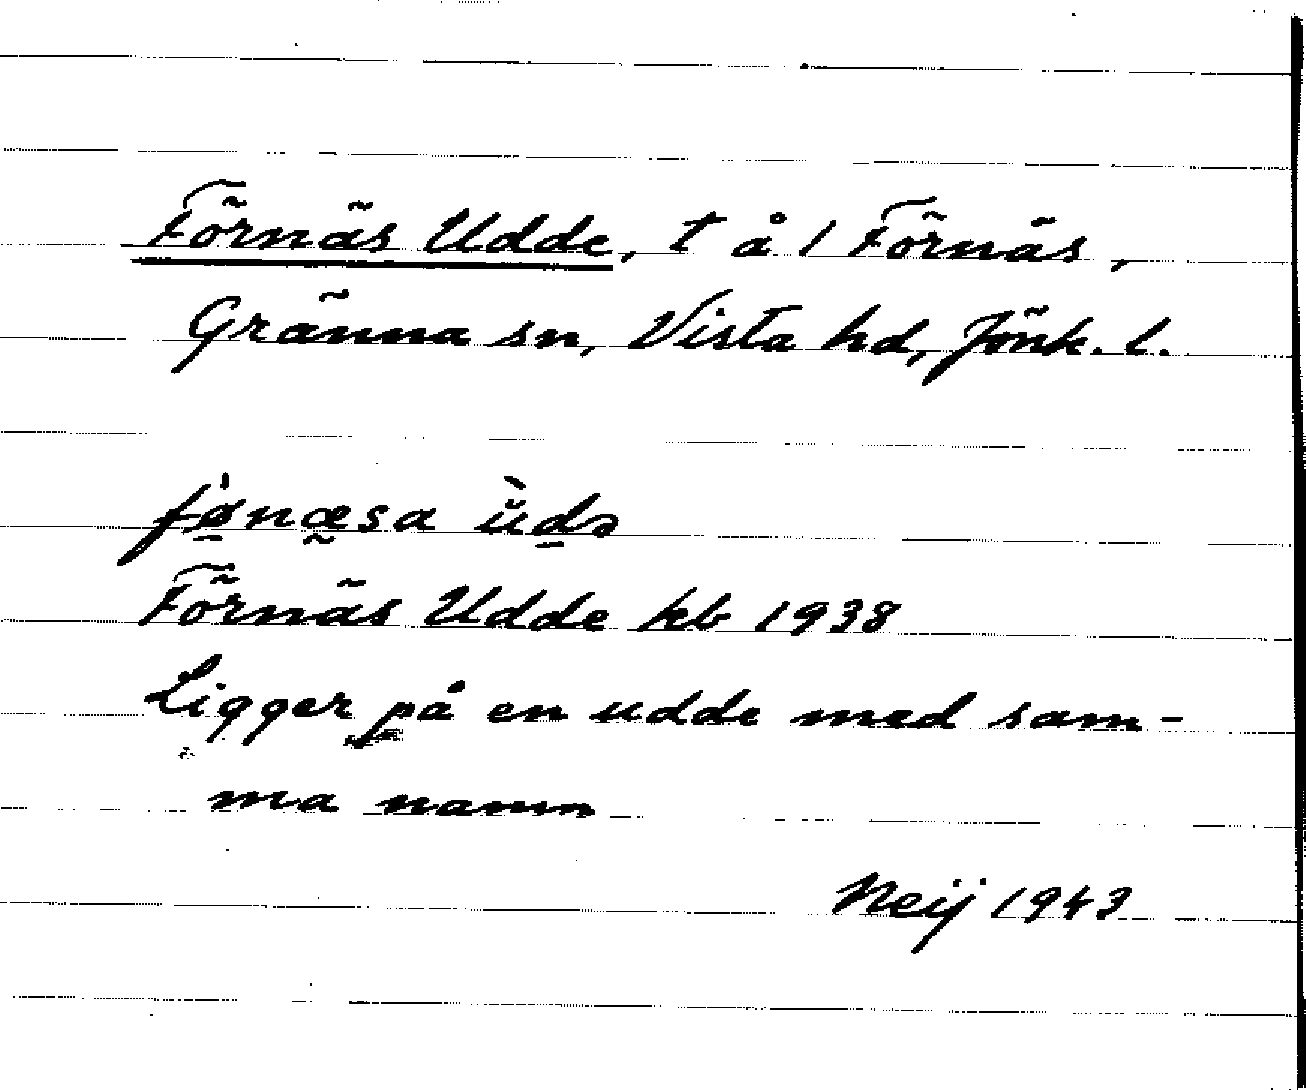 Förnäs Udde, t å 1 Förnäs,
Gränna sn, Vista hd, Jönk. l.
fø̱næ̰sa ùdə
Förnäs Udde kb 1938
Ligger på en udde med sam-
ma namn
Neij 1943